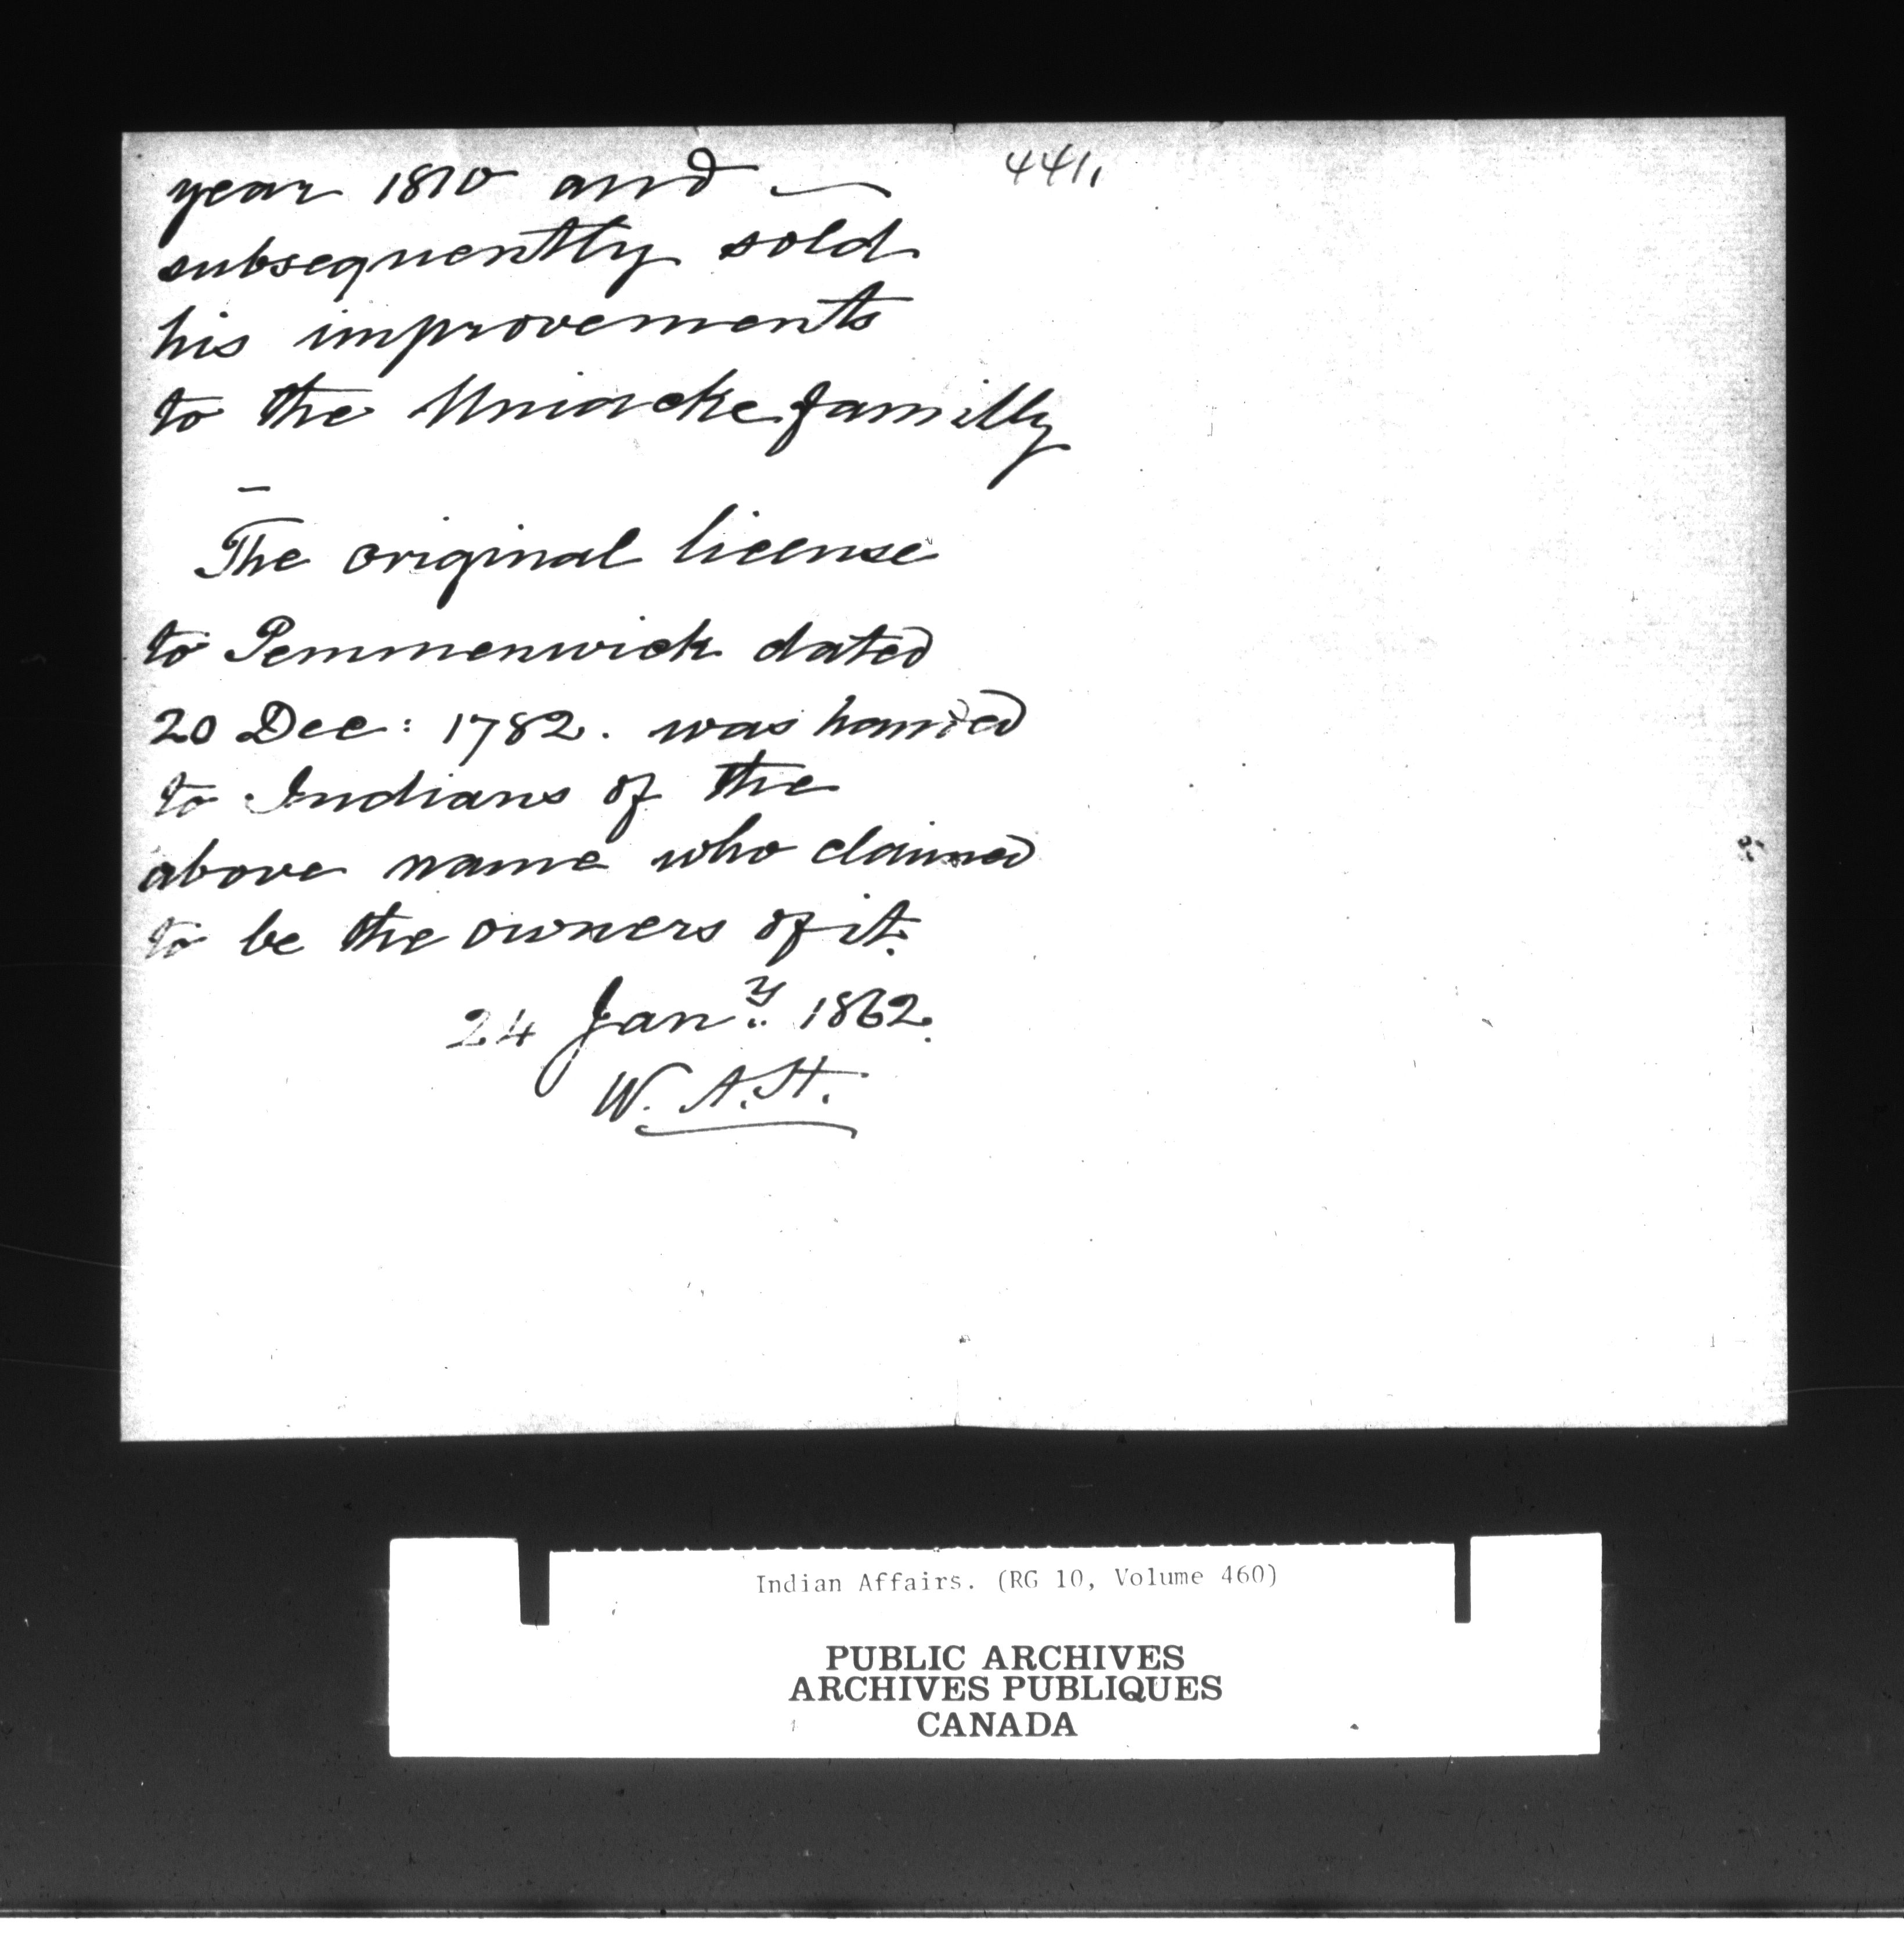 441,
year 1810 and —
subsequently sold
his improvements
to the Uniacke familly
—
The original license
to Pemmenwick dated
20 Dec: 1782. was handed
to Indians of the
above name who claimed
to be the owners of it.
24 Jany. 1862.
W. A. H.
Indian Affairs. (RG 10, Volume 460)
PUBLIC ARCHIVES
ARCHIVES PUBLIQUES
CANADA